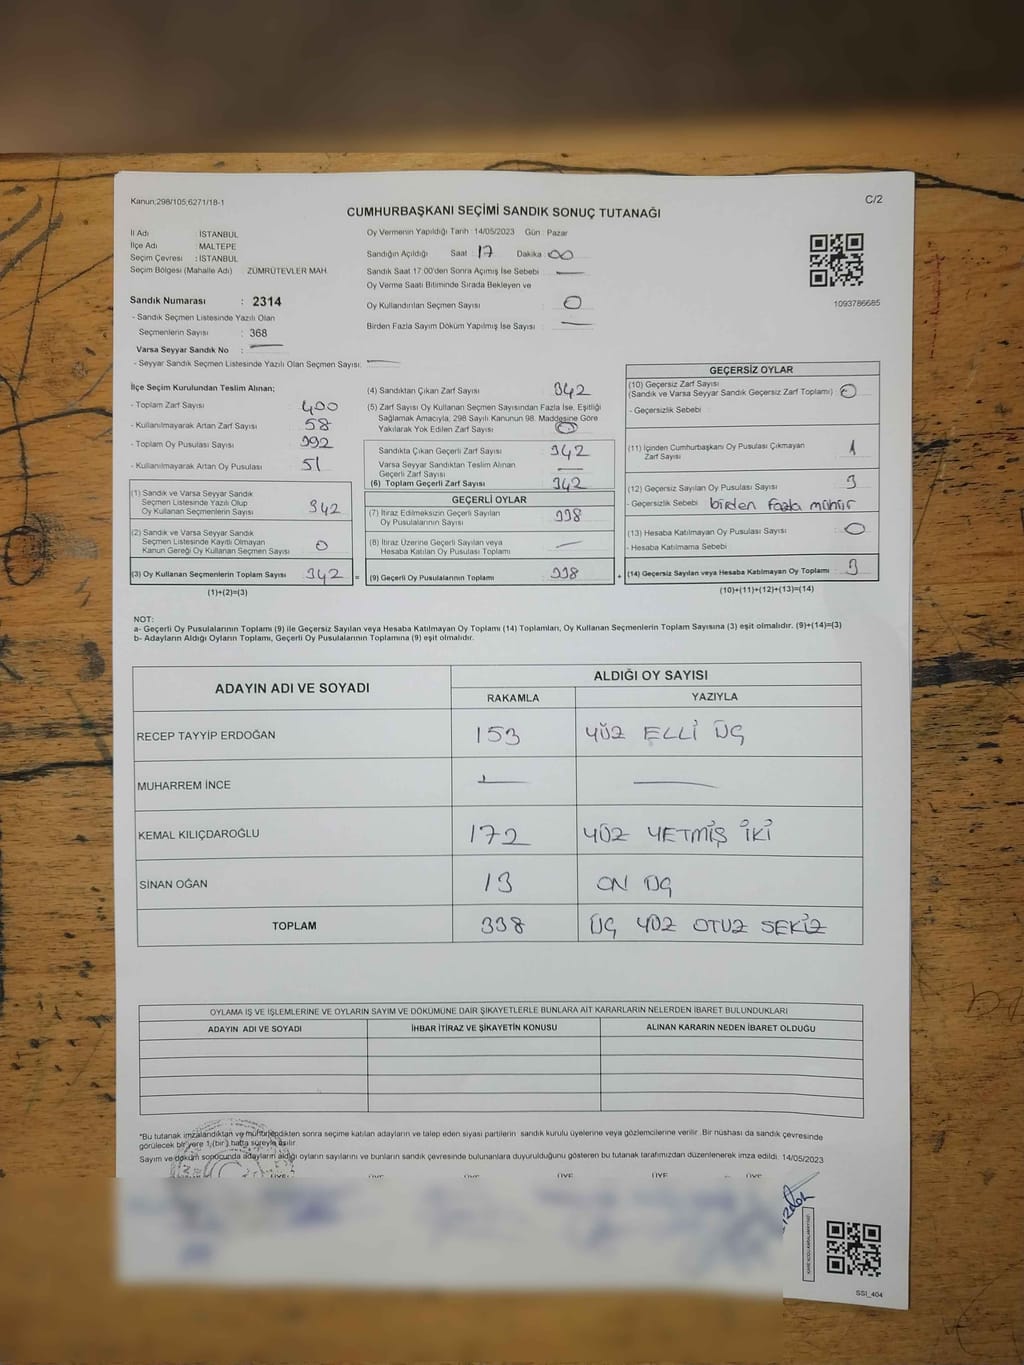 Kanun;298/105;6271/18-1
C/2
CUMHURBAŞKANI SEÇİMİ SANDIK SONUÇ TUTANAĞI
İl Adı : İSTANBUL
İlçe Adı : MALTEPE
Seçim Çevresi : İSTANBUL
Seçim Bölgesi (Mahalle Adı) : ZÜMRÜTEVLER MAH.
Sandık Numarası : 2314
- Sandık Seçmen Listesinde Yazılı Olan
Seçmenlerin Sayısı : 368
Varsa Seyyar Sandık No : —
- Seyyar Sandık Seçmen Listesinde Yazılı Olan Seçmen Sayısı: —
Oy Vermenin Yapıldığı Tarih : 14/05/2023 Gün : Pazar
Sandığın Açıldığı Saat : 17 Dakika : 00
Sandık Saat 17:00'den Sonra Açımış İse Sebebi : —
Oy Verme Saati Bitiminde Sırada Bekleyen ve
Oy Kullandırılan Seçmen Sayısı : 0
Birden Fazla Sayım Döküm Yapılmış İse Sayısı : —
1093786685
İlçe Seçim Kurulundan Teslim Alınan;
- Toplam Zarf Sayısı : 400
- Kullanılmayarak Artan Zarf Sayısı : 58
- Toplam Oy Pusulası Sayısı : 392
- Kullanılmayarak Artan Oy Pusulası : 51
(1) Sandık ve Varsa Seyyar Sandık
Seçmen Listesinde Yazılı Olup
Oy Kullanan Seçmenlerin Sayısı : 342
(2) Sandık ve Varsa Seyyar Sandık
Seçmen Listesinde Kayıtlı Olmayan
Kanun Gereği Oy Kullanan Seçmen Sayısı : 0
(3) Oy Kullanan Seçmenlerin Toplam Sayısı : 342 =
(1)+(2)=(3)
(4) Sandıktan Çıkan Zarf Sayısı : 342
(5) Zarf Sayısı Oy Kullanan Seçmen Sayısından Fazla İse, Eşitliği
Sağlamak Amacıyla, 298 Sayılı Kanunun 98. Maddesine Göre
Yakılarak Yok Edilen Zarf Sayısı : 0
Sandıkta Çıkan Geçerli Zarf Sayısı : 342
Varsa Seyyar Sandıktan Teslim Alınan
Geçerli Zarf Sayısı : —
(6) Toplam Geçerli Zarf Sayısı : 342
GEÇERLİ OYLAR
(7) İtiraz Edilmeksizin Geçerli Sayılan
Oy Pusulalarının Sayısı : 338
(8) İtiraz Üzerine Geçerli Sayılan veya
Hesaba Katılan Oy Pusulası Toplamı : —
(9) Geçerli Oy Pusulalarının Toplamı : 338 +
GEÇERSİZ OYLAR
(10) Geçersiz Zarf Sayısı
(Sandık ve Varsa Seyyar Sandık Geçersiz Zarf Toplamı) : 0
- Geçersizlik Sebebi :
(11) İçinden Cumhurbaşkanı Oy Pusulası Çıkmayan
Zarf Sayısı : 1
(12) Geçersiz Sayılan Oy Pusulası Sayısı : 3
- Geçersizlik Sebebi : birden fazla mühür
(13) Hesaba Katılmayan Oy Pusulası Sayısı : 0
- Hesaba Katılmama Sebebi :
(14) Geçersiz Sayılan veya Hesaba Katılmayan Oy Toplamı : 3
(10)+(11)+(12)+(13)=(14)
NOT:
a- Geçerli Oy Pusulalarının Toplamı (9) ile Geçersiz Sayılan veya Hesaba Katılmayan Oy Toplamı (14) Toplamları, Oy Kullanan Seçmenlerin Toplam Sayısına (3) eşit olmalıdır. (9)+(14)=(3)
b- Adayların Aldığı Oyların Toplamı, Geçerli Oy Pusulalarının Toplamına (9) eşit olmalıdır.
ADAYIN ADI VE SOYADI
ALDIĞI OY SAYISI
RAKAMLA YAZIYLA
RECEP TAYYİP ERDOĞAN 153 YÜZ ELLİ ÜÇ
MUHARREM İNCE — —
KEMAL KILIÇDAROĞLU 172 YÜZ YETMİŞ İKİ
SİNAN OĞAN 13 ON ÜÇ
TOPLAM 338 ÜÇ YÜZ OTUZ SEKİZ
OYLAMA İŞ VE İŞLEMLERİNE VE OYLARIN SAYIM VE DÖKÜMÜNE DAİR ŞİKAYETLERLE BUNLARA AİT KARARLARIN NELERDEN İBARET BULUNDUKLARI
ADAYIN ADI VE SOYADI İHBAR İTİRAZ VE ŞİKAYETİN KONUSU ALINAN KARARIN NEDEN İBARET OLDUĞU
*Bu tutanak imzalandıktan ve mühürlendikten sonra seçime katılan adayların ve talep eden siyasi partilerin sandık kurulu üyelerine veya gözlemcilerine verilir. Bir nüshası da sandık çevresinde
görülecek bir yere 1 (bir) hafta süreyle asılır.
Sayım ve döküm sonucunda adayların aldığı oyların sayılarını ve bunların sandık çevresinde bulunanlara duyurulduğunu gösteren bu tutanak tarafımızdan düzenlenerek imza edildi. 14/05/2023
ÜYE ÜYE ÜYE ÜYE ÜYE ÜYE
SSI_404